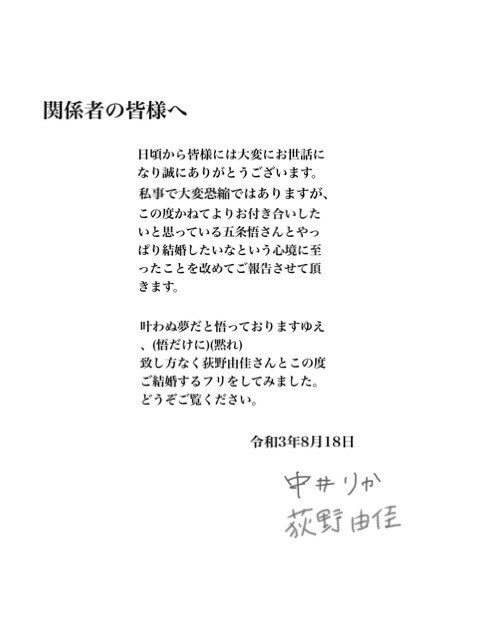 関係者の皆様へ
日頃から皆様には大変にお世話に
なり誠にありがとうございます。
私事で大変恐縮ではありますが、
この度かねてよりお付き合いした
いと思っている五条悟さんとやっ
ぱり結婚したいなという心境に至
ったことを改めてご報告させて頂
きます。
叶わぬ夢だと悟っておりますゆえ
、(悟だけに)(黙れ)
致し方なく荻野由佳さんとこの度
ご結婚するフリをしてみました。
どうぞご覧ください。
令和3年8月18日
中井りか
荻野由佳